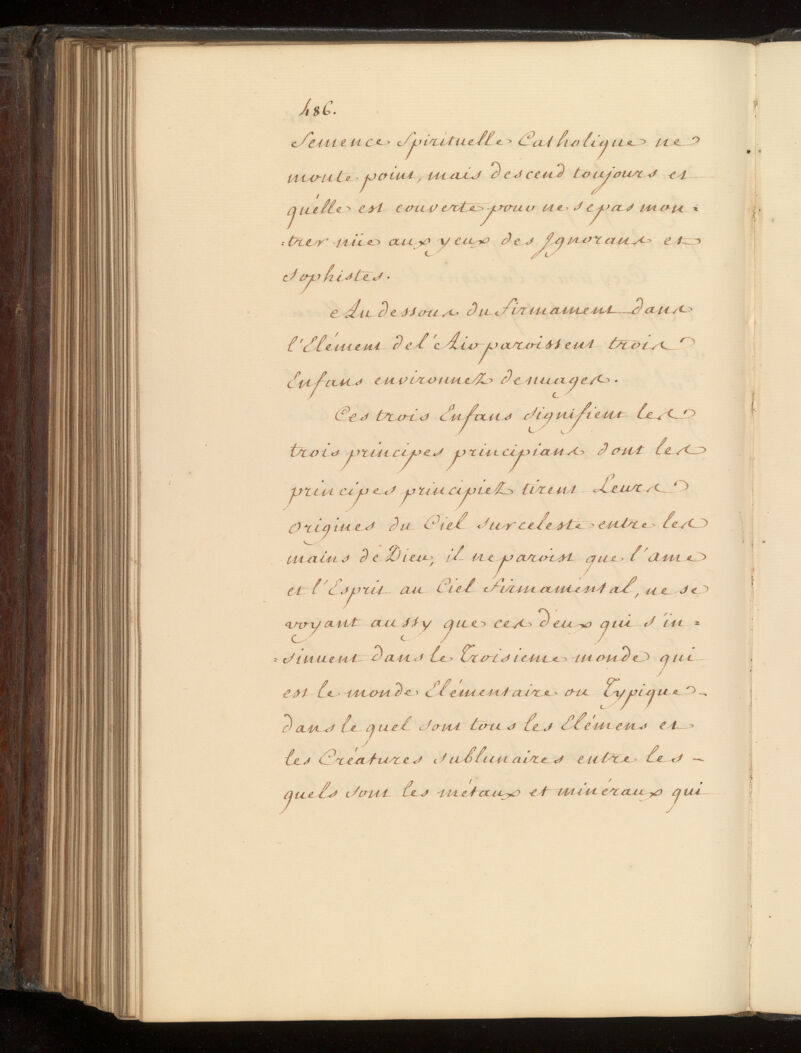 486.
Semence Spirituelle Catholique ne
monte point, mais descend toujours et
qu'elle est couverte pour ne se pas mon =
= trer nüe aux yeux des Jgnorans et
Sophistes.
Au dessous du Firmament dans
l'Elément de l'Air paroissent trois
Enfans environnez de nuages.
Ces trois Enfans signifient les
trois principes principians dont les
principes principiez tirent Leurs
Origines du Ciel surceleste entre les
mains de Dieu, il ne paroist que l'ame
et l'Esprit au Ciel Firmamental, ne se
voyant aussy que ces deux qui s'in =
= sinuent dans le Troisieme monde qui
est le monde Elémentaire ou Typique
dans le quel sont tous les Elémens et
les Créatures sublunaires entre les -
quels sont les métaux et minéraux qui